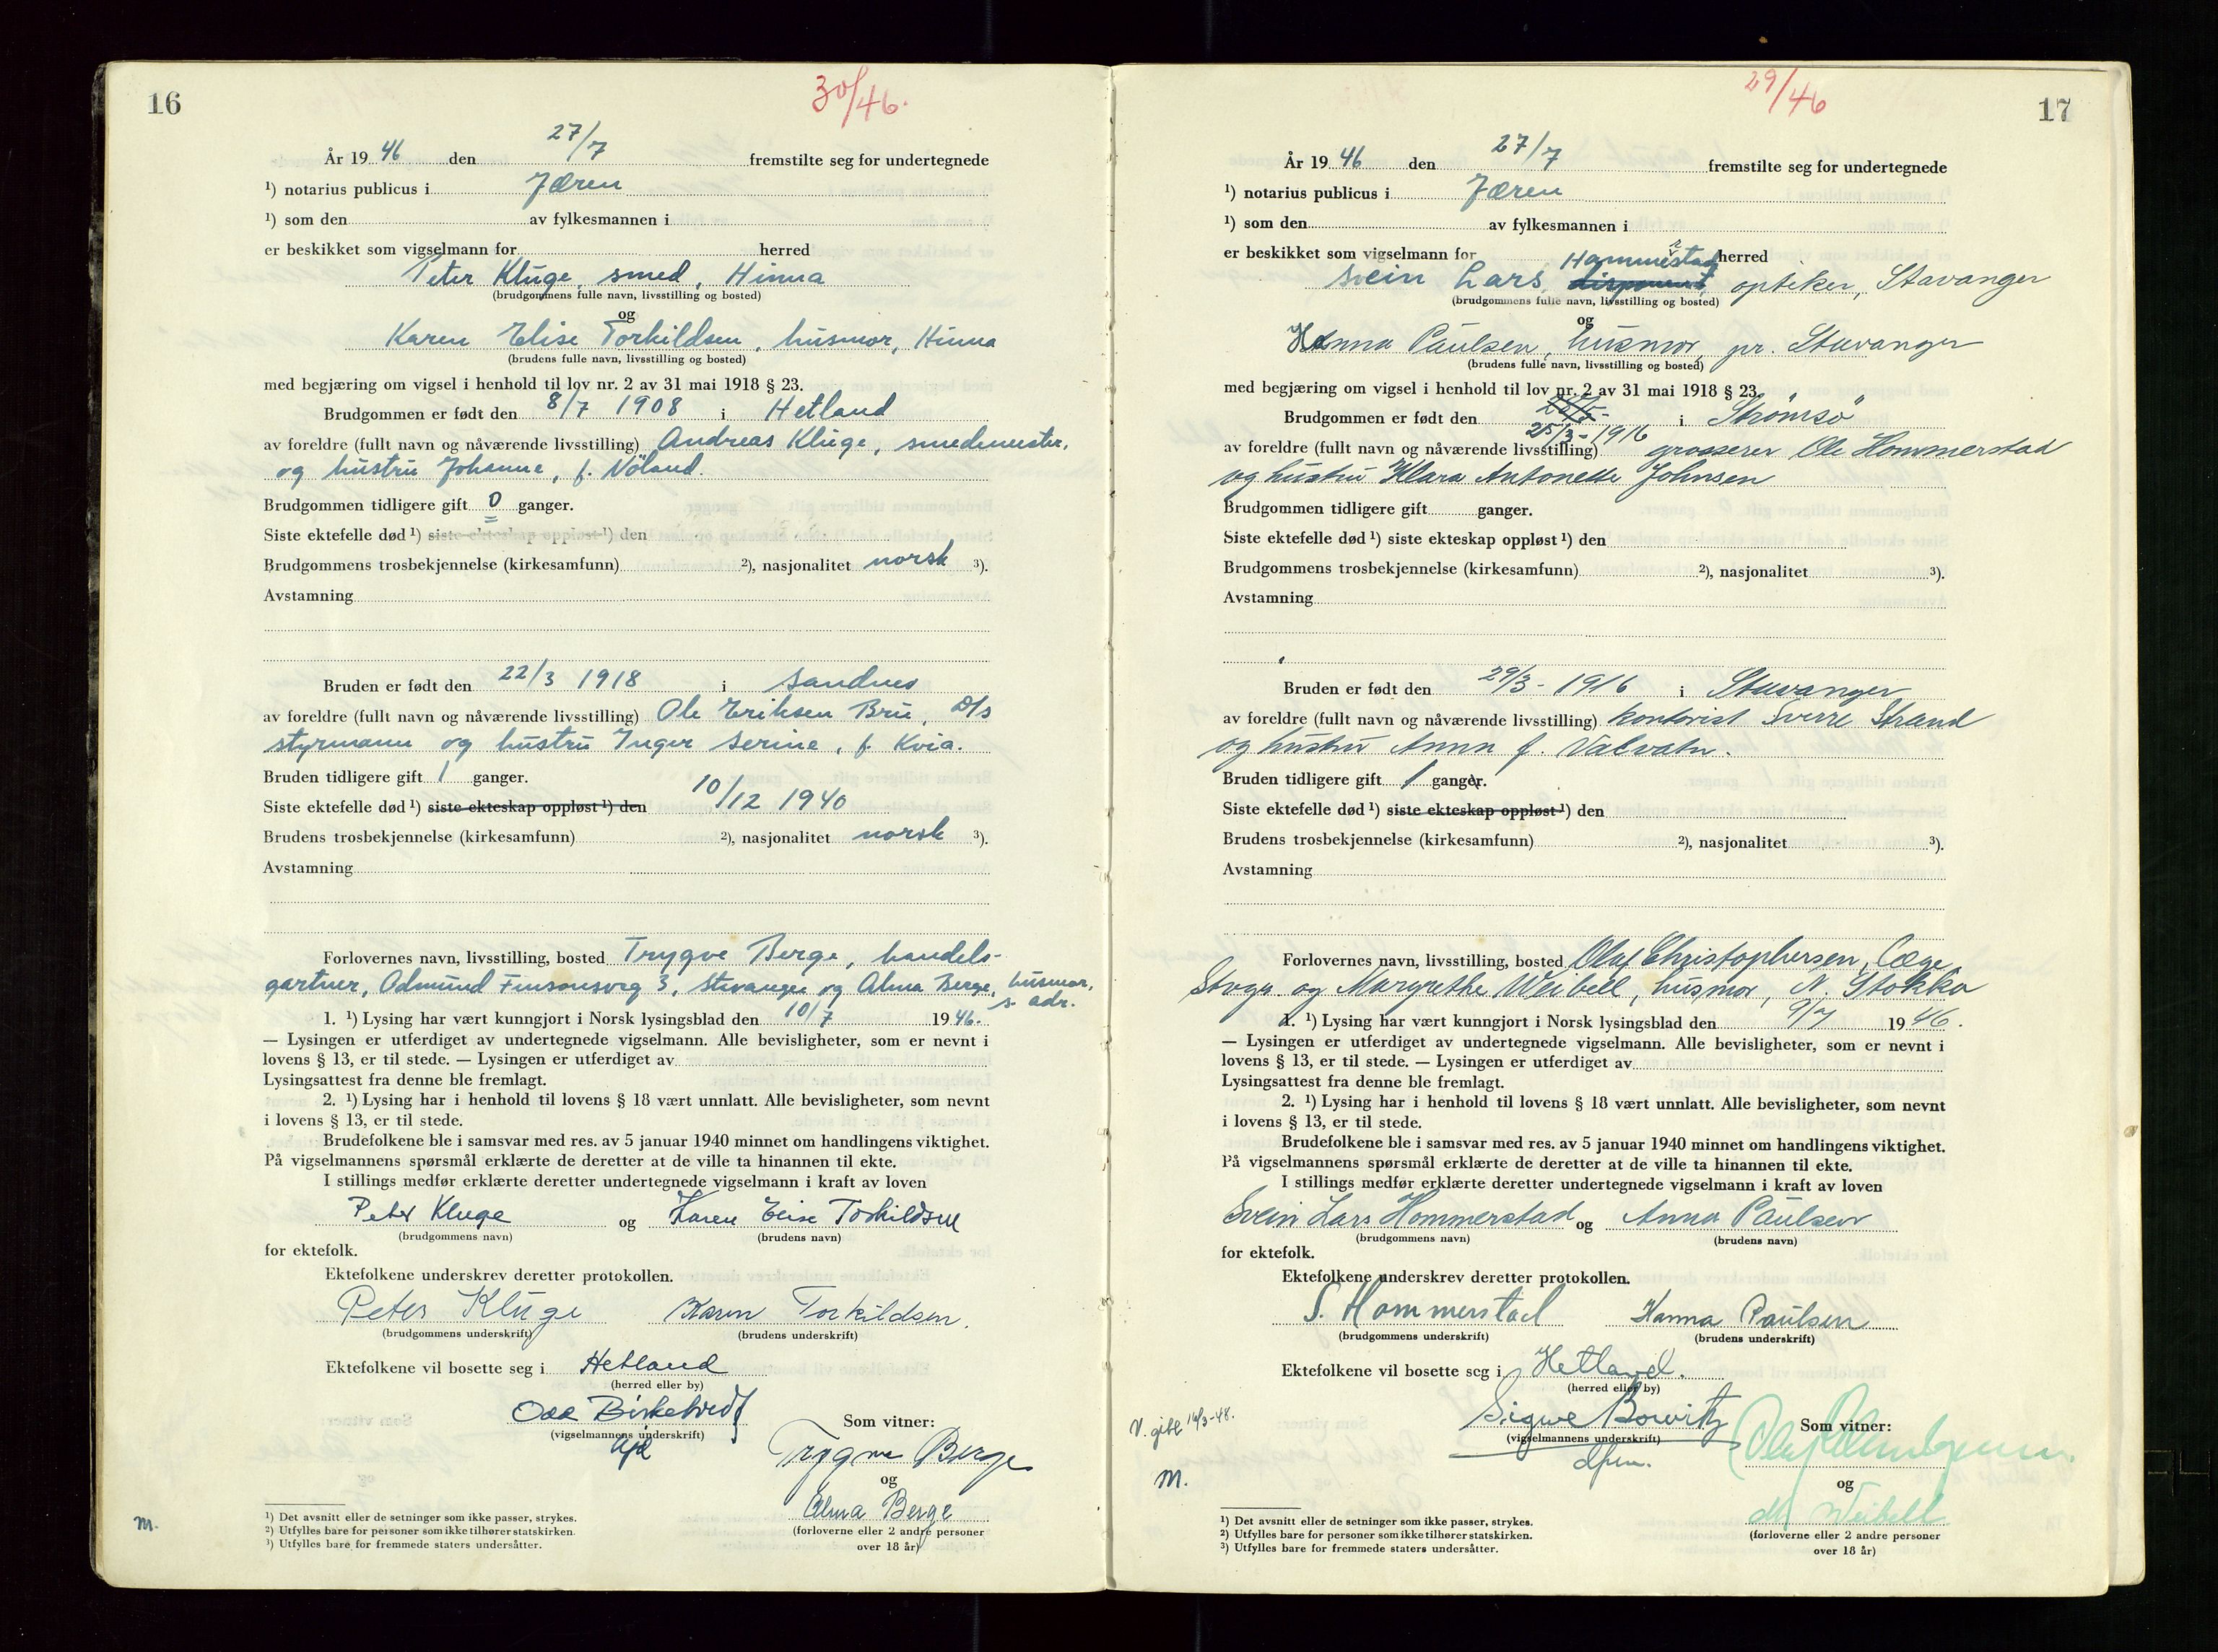 16
30/46.
27/7
År 19 46 den fremstilte seg for undertegnede
¹) notarius publicus i Jæren
¹) som den av fylkesmannen i
er beskikket som vigselmann for herred
Peter Kluge, smed, Hinna
(brudgommens fulle navn, livsstilling og bosted)
og
Karen Elise Torkildsen, husmor, Hinna
(brudens fulle navn, livsstilling og bosted)
med begjæring om vigsel i henhold til lov nr. 2 av 31 mai 1918 § 23.
Brudgommen er født den 8/7 1908 i Hetland
av foreldre (fullt navn og nåværende livsstilling) Andreas Kluge, smedmester,
og hustru Johanne, f. Nöland.
Brudgommen tidligere gift 0 ganger.
Siste ektefelle død ¹) siste ekteskap oppløst ¹) den
Brudgommens trosbekjennelse (kirkesamfunn) ²), nasjonalitet norsk ³).
Avstamning
Bruden er født den 22/3 1918 i Sandnes
av foreldre (fullt navn og nåværende livsstilling) Ole Eriksen Brue, D/s
styrmann og hustru Inger Serine, f. Kvia.
Bruden tidligere gift 1 ganger.
Siste ektefelle død ¹) siste ekteskap oppløst ¹) den 10/12 1940
Brudens trosbekjennelse (kirkesamfunn) ²), nasjonalitet norsk ³).
Avstamning
Forlovernes navn, livsstilling, bosted Trygve Berge, handels-
gartner, Odmund Finsonsveg 3, Stavanger og Alma Berge, husmor,
s. adr.
1. ¹) Lysing har vært kunngjort i Norsk lysingsblad den 10/7 19 46.
— Lysingen er utferdiget av undertegnede vigselmann. Alle bevisligheter, som er nevnt i
lovens § 13, er til stede. — Lysingen er utferdiget av
Lysingsattest fra denne ble fremlagt.
2. ¹) Lysing har i henhold til lovens § 18 vært unnlatt. Alle bevisligheter, som nevnt
i lovens § 13, er til stede.
Brudefolkene ble i samsvar med res. av 5 januar 1940 minnet om handlingens viktighet.
På vigselmannens spørsmål erklærte de deretter at de ville ta hinannen til ekte.
I stillings medfør erklærte deretter undertegnede vigselmann i kraft av loven
Peter Kluge og Karen Elise Torkildsen
(brudgommens navn) (brudens navn)
for ektefolk.
Ektefolkene underskrev deretter protokollen.
Peter Kluge Karen Torkildsen.
(brudgommens underskrift) (brudens underskrift)
Ektefolkene vil bosette seg i Hetland
(herred eller by)
Odd Birketvedt
(vigselmannens underskrift)
Som vitner:
Trygve Berge
og
Alma Berge
(forloverne eller 2 andre personer
over 18 år)
¹) Det avsnitt eller de setninger som ikke passer, strykes.
²) Utfylles bare for personer som ikke tilhører statskirken.
³) Utfylles bare for fremmede staters undersåtter.
m.
17
29/46
27/7
År 19 46 den fremstilte seg for undertegnede
¹) notarius publicus i Jæren
¹) som den av fylkesmannen i
er beskikket som vigselmann for herred
Svein Lars Hammerstad optiker, Stavanger
(brudgommens fulle navn, livsstilling og bosted)
og
Hanna Paulsen, husmor, pr. Stavanger
(brudens fulle navn, livsstilling og bosted)
med begjæring om vigsel i henhold til lov nr. 2 av 31 mai 1918 § 23.
Brudgommen er født den 25/3-1916 i Strömsö
av foreldre (fullt navn og nåværende livsstilling) grosserer Ole Hommerstad
og hustru Klara Antonette Johnsen
Brudgommen tidligere gift ganger.
Siste ektefelle død ¹) siste ekteskap oppløst ¹) den
Brudgommens trosbekjennelse (kirkesamfunn) ²), nasjonalitet ³).
Avstamning
Bruden er født den 29/3-1916 i Stavanger
av foreldre (fullt navn og nåværende livsstilling) kontorist Sverre Strand
og hustru Anna f. Valvatn.
Bruden tidligere gift 1 ganger.
Siste ektefelle død ¹) siste ekteskap oppløst ¹) den
Brudens trosbekjennelse (kirkesamfunn) ²), nasjonalitet ³).
Avstamning
Forlovernes navn, livsstilling, bosted Olaf Christophersen, læge,
Stvgr. og Margrethe Weibell, husmor, N. Stokka
1. ¹) Lysing har vært kunngjort i Norsk lysingsblad den 9/7 19 46.
— Lysingen er utferdiget av undertegnede vigselmann. Alle bevisligheter, som er nevnt i
lovens § 13, er til stede. — Lysingen er utferdiget av
Lysingsattest fra denne ble fremlagt.
2. ¹) Lysing har i henhold til lovens § 18 vært unnlatt. Alle bevisligheter, som nevnt
i lovens § 13, er til stede.
Brudefolkene ble i samsvar med res. av 5 januar 1940 minnet om handlingens viktighet.
På vigselmannens spørsmål erklærte de deretter at de ville ta hinannen til ekte.
I stillings medfør erklærte deretter undertegnede vigselmann i kraft av loven
Svein Lars Hommerstad og Anna Paulsen
(brudgommens navn) (brudens navn)
for ektefolk.
Ektefolkene underskrev deretter protokollen.
S. Hommerstad Hanna Paulsen
(brudgommens underskrift) (brudens underskrift)
Ektefolkene vil bosette seg i Hetland.
(herred eller by)
Sigwe Bowitz
(vigselmannens underskrift)
dfm.
V. gitt 16/3-48.
m.
Som vitner:
og
Weibell
(forloverne eller 2 andre personer
over 18 år)
¹) Det avsnitt eller de setninger som ikke passer, strykes.
²) Utfylles bare for personer som ikke tilhører statskirken.
³) Utfylles bare for fremmede staters undersåtter.